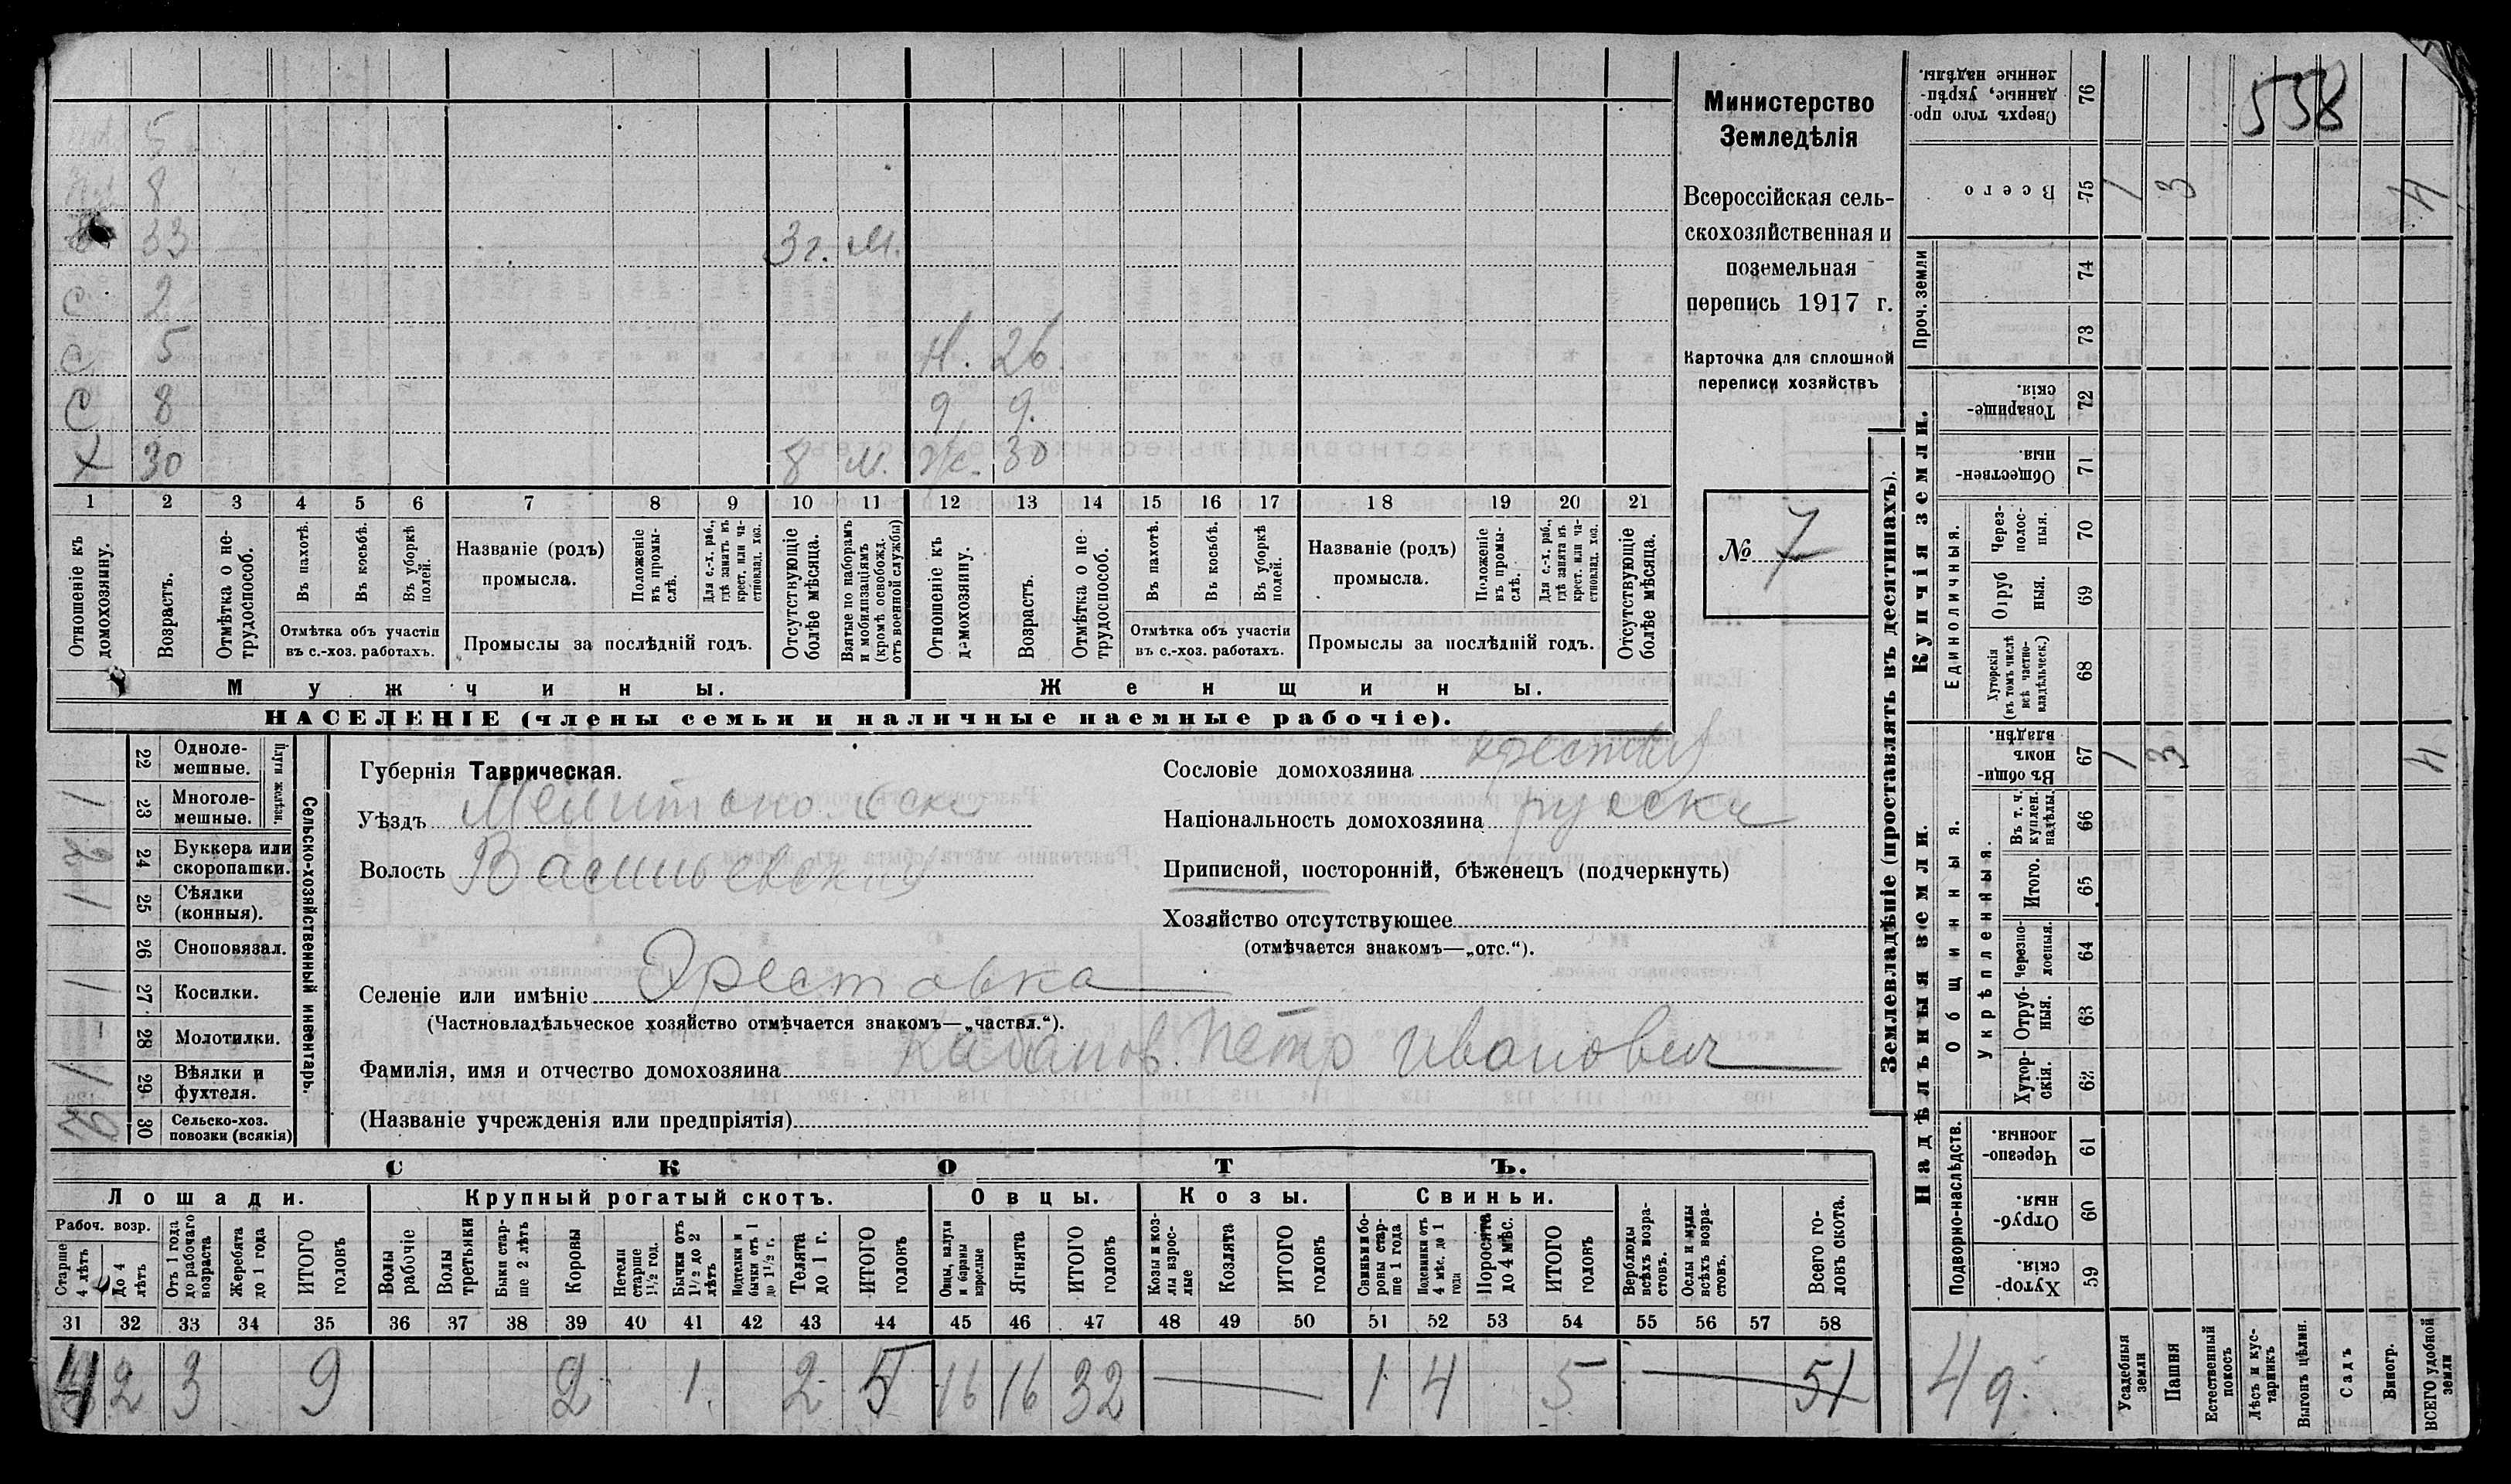 5
8
33 3 г. м.
С 2
С 5 Н. 26
С 8 9. 9.
Х 30 8 м. ж. 30
1 2 3 4 5 6 7 8 9 10 11 12 13 14 15 16 17 18 19 20 21
Отношеніе къ домохозяину.
Возрастъ.
Отмѣтка о не-трудоспособ.
Въ пахотѣ.
Въ косьбѣ.
Въ уборкѣ полей.
Отмѣтка объ участіи въ с.-хоз. работахъ.
Названіе (родъ) промысла.
Положеніе въ промы-слѣ.
Для с.-х. раб., гдѣ занятъ въ крест. или ча-стновлад. хоз.
Промыслы за послѣдній годъ.
Отсутствующіе болѣе мѣсяца.
Взятые по наборамъ и мобилизаціямъ (кромѣ освобожд. отъ военной службы)
Отношеніе къ домохозяину.
Возрастъ.
Отмѣтка о не-трудоспособ.
Въ пахотѣ.
Въ косьбѣ.
Въ уборкѣ полей.
Отмѣтка объ участіи въ с.-хоз. работахъ.
Названіе (родъ) промысла.
Положеніе въ промы-слѣ.
Для с.-х. раб., гдѣ занята въ крест. или ча-стновлад. хоз.
Промыслы за послѣдній годъ.
Отсутствующіе болѣе мѣсяца.
Мужчины. Женщины.
НАСЕЛЕНІЕ (члены семьи и наличные наемные рабочіе).
Министерство
Земледѣлія
Всероссійская сель-
скохозяйственная и
поземельная
перепись 1917 г.
Карточка для сплошной
переписи хозяйствъ
№ 7
Сельско-хозяйственный инвентарь.
Плуги желѣзн.
22 Одноле-мешные.
1 23 Многоле-мешные.
2 24 Буккера или скоропашки.
1 25 Сѣялки (конныя).
26 Сноповязал.
1 27 Косилки.
- 28 Молотилки.
1 29 Вѣялки и фухтеля.
30 Сельско-хоз. повозки (всякія)
Губернія Таврическая.
Уѣздъ Мелитопольск
Волость Васильевская
Сословіе домохозяина крестьян
Національность домохозяина русски
Приписной, посторонній, бѣженецъ (подчеркнуть)
Хозяйство отсутствующее
(отмѣчается знакомъ—„отс.“).
Селеніе или имѣніе Орестовка
(Частновладѣльческое хозяйство отмѣчается знакомъ—„частвл.“).
Фамилія, имя и отчество домохозяина Кабанов Петр Иванович
(Названіе учрежденія или предпріятія)
СКОТЪ.
Лошади. Крупный рогатый скотъ. Овцы. Козы. Свиньи.
Рабоч. возр.
Старше 4 лѣтъ
До 4 лѣтъ
Отъ 1 года до рабочаго возраста
Жеребята до 1 года
ИТОГО головъ
Волы рабочіе
Волы третьяки
Быки стар-ше 2 лѣтъ
Коровы
Нетели старше 1½ год.
Бычки отъ 1½ до 2 лѣтъ
Подтелки и бычки отъ 1 до 1½ г.
Телята до 1 г.
ИТОГО головъ
Овцы, валухи и бараны взрослые
Ягнята
ИТОГО головъ
Козы и коз-лы взрос-лые
Козлята
ИТОГО головъ
Свиньи и бо-ровы стар-ше 1 года
Подсвинки отъ 4 мѣс. до 1 года
Поросята до 4 мѣс.
ИТОГО головъ
Верблюды всѣхъ возра-стовъ.
Ослы и мулы всѣхъ возра-стовъ.
Всего го-ловъ скота.
31 32 33 34 35 36 37 38 39 40 41 42 43 44 45 46 47 48 49 50 51 52 53 54 55 56 57 58
4 2 3 9 2 1 2 5 16 16 32 — 1 4 5 — 51
558
Землевладѣніе (проставлять въ десятинахъ).
Надѣльныя земли. Купчія земли. Проч. земли
Подворно-наслѣдств.
Общинныя.
Укрѣпленныя.
Единоличныя.
76 Сверхъ того про-данные, укрѣп-ленные надѣлы.
75 Всего 1 3 4
74
73
72 Товарище-скія.
71 Обществен-ныя.
70 Через-полос-ныя.
69 Отруб ныя.
68 Хуторскія (въ томъ числѣ всѣ частно-владѣльческ.)
67 Въ общин-номъ владѣн. 1 3 4
66 Въ т. ч. куплен. надѣлы.
65 Итого.
64 Черезпо-лосныя.
63 Отруб-ныя.
62 Хутор-скія.
61 Черезпо-лосныя.
60 Отруб-ныя.
59 Хутор-скія.
4 9.
Усадебныя земли
Пашня
Естественный покосъ
Лѣсъ и кус-тарникъ
Выгонъ цѣлин.
Садъ
Виногр.
ВСЕГО удобной земли